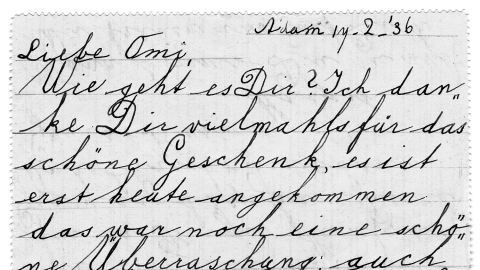 Adam 14-2-'36
Liebe Omi,
Wie geht es Dir? Ich dan„
ke Dir vielmahls für das
schöne Geschenk, es ist
erst heute angekommen
das war noch eine schö„
ne Überraschung; auch